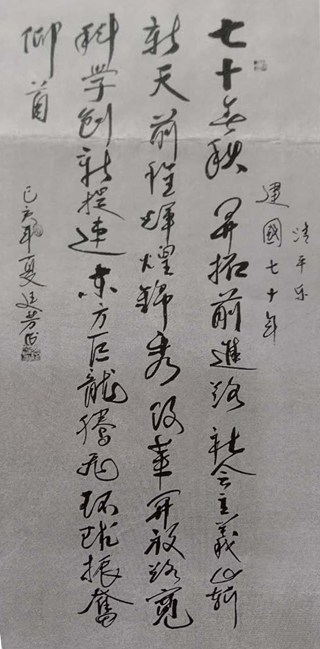 清平乐
建國七十年
七十春秋 開拓前進路 社会主義嶄
新天前程輝煌錦秀 改革開放路寬
科学創新提速 东方巨龍騰飛环球振奮
仰首
己亥年夏